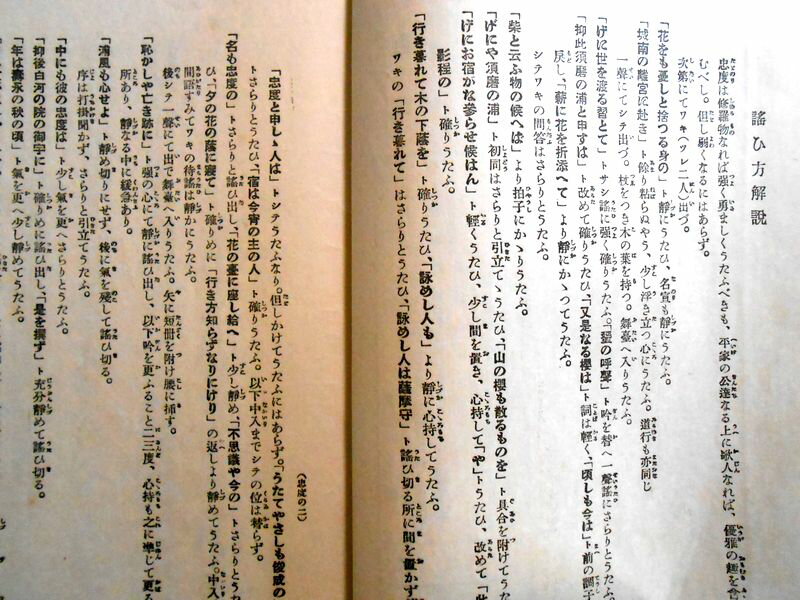 謠ひ方解説
忠度は修羅物なれば強く勇ましくうたふべきも、平家の公達なる上に歌人なれば、優雅の趣を含
むべし。但し弱くなるにはあらず。
次第にてワキ(ツレ二人)出づ。
「花をも憂しと捨つる身の」ト靜にうたひ、名宣も靜にうたふ。
「城南の離宮に赴き」ト餘り粘らぬやう、少し浮き立つ心にうたふ。道行も亦同じ
一聲にてシテ出づ。杖をつき木の葉を持つ。舞臺へ入りうたふ。
「げに世を渡る習とて」ト サシ謠に強く確りうたふ。「蜑の呼聲」ト吟を替へ一聲謠にさらりとうたふ。
「抑此須磨の浦と申すは」ト改めて確りうたふ。「又是なる櫻は」ト詞は輕く、「頃しも今は」ト前の調子
戻し、「薪に花を折添へて」より靜にかゝつてうたふ。
シテワキの問答はさらりとうたふ。
「柴と云ふ物の候へば」より拍子にかゝりうたふ。
「げにや須磨の浦」ト初同はさらりと引立てゝうたひ、「山の櫻も散るものを」ト具合を附けてうた
「げにお宿がな參らせ候はん」ト輕くうたひ、少し間を置き、心持して「や」トうたひ、改めて「此
影程の」ト確りうたふ。
「行き暮れて木の下蔭を」ト確りうたひ、「詠めし人も」より靜に心持してうたふ。
ワキの「行き暮れて」はさらりとうたひ、「詠めし人は薩摩守」ト謠ひ切る所に間を置かず
(忠度の二)
「忠度と申しゝ人は」トシテうたふなり。但しかけてうたふにはあらず。「うたてやさしも俊成の
トさらりとうたひ、「宿は今宵の主の人」ト確りうたふ。以下中入までシテの位は替らず。
「名も忠度の」トさらりと謠ひ出し、「花の臺に座し給へ」ト少し靜め、「不思議や今の」トさらりとうた
ひ、「夕の花の蔭に寢て」ト確りめに「行き方知らずなりにけり」の返しより靜めてうたふ。中入
間語すみてワキの待謠は靜かにうたふ。
後シテ一聲にて出で舞臺へ入りうたふ。矢に短冊を附け腰に挿す。
「恥かしや亡き跡に」ト強の心にて靜に謠ひ出し、以下吟を更ふること二三度、心持も之に準じて更る
所あり、靜なる中に緩急あり。
「浦風も心せよ」ト靜め切りにせず、後に氣を殘して謠ひ切る。
序は打掛聞かず、さらりと引立てうたふ。
「中にも彼の忠度は」ト少し氣を更へさらりとうたふ。
「抑後白河の院の御宇に」ト確りめに謠ひ出し、「是を撰ず」ト充分靜めて謠ひ切る。
「年は壽永の秋の頃」ト氣を更へ少し靜めてうたふ。